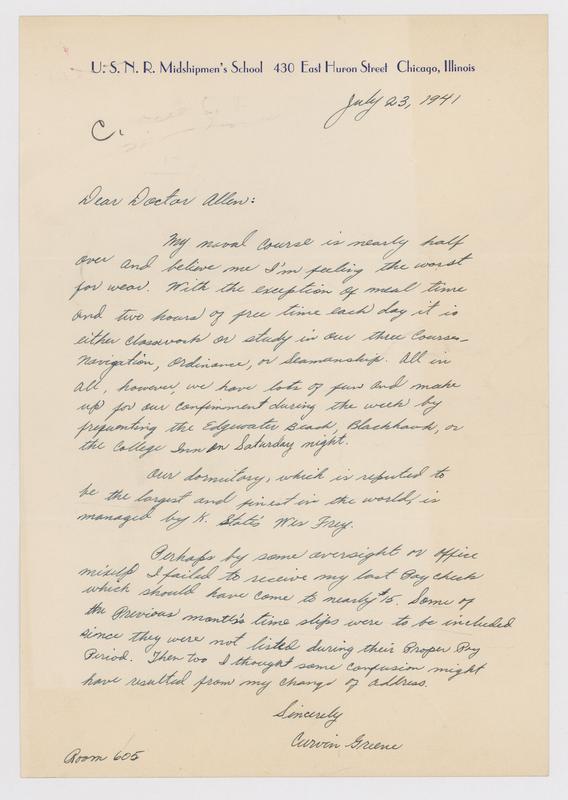 U. S. N. R. Midshipmen's School 430 East Huron Street Chicago, Illinois
July 23, 1941
C.
Dear Doctor Allen:
My naval course is nearly half
over and believe me I'm feeling the worst
for wear. With the exception of meal time
and two hours of free time each day it is
either classwork or study in our three courses—
Navigation, Ordinance, or Seamanship. All in
all, however, we have lots of fun and make
up for our confinment during the week by
frequenting the Edgewater Beach, Blackhawk, or
the College Inn on Saturday night.
Our dormitory, which is reputed to
be the largest and finest in the world, is
managed by K. State's Wes Frey.
Perhaps by some oversight or office
I failed to receive my last Pay check
which should have come to nearly $15. Some of
the Previous month's time slips were to be included
since they were not listed during their Proper Pay
Period. Then too I thought some confusion might
have resulted from my change of address.
Sincerely
Curvin Greene
Room 605